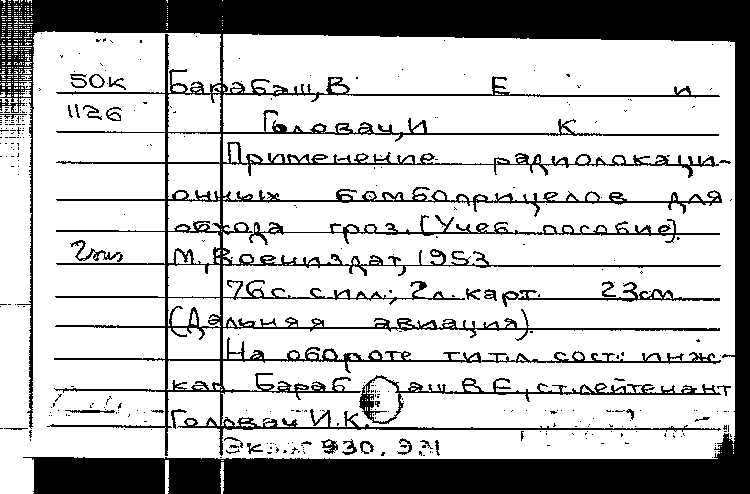 50К Барабаш, В Е и
1126 Головач, И К
Применение радиолокаци-
онных бомбоприцелов для
обхода гроз. (Учеб. пособие).
2экз М., Воениздат, 1953
76с. с илл.; 2л. карт. 23см
(Дальняя авиация).
На обороте тит.л. сост.: инж-
кап. Барабаш В.Е., ст. лейтенант
Головач И.К.
930, 931